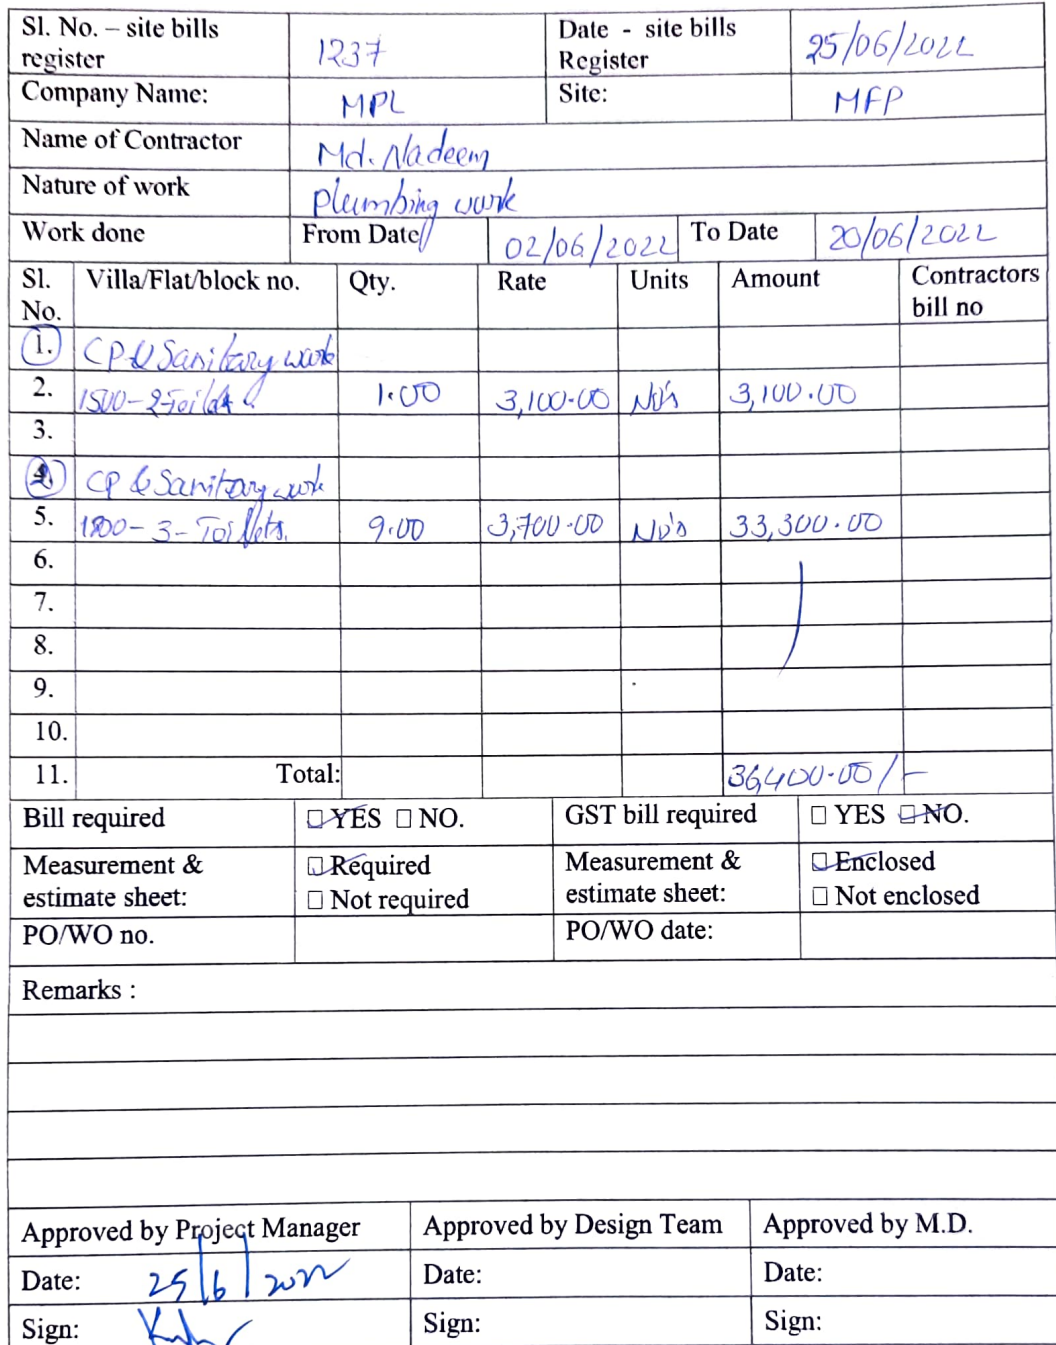 Sl. No. – site bills register 1237 Date - site bills Register 25/06/2022
Company Name: MPL Site: MFP
Name of Contractor Md. Nadeem
Nature of work Plumbing work
Work done From Date 02/06/2022 To Date 20/06/2022
Sl. No. Villa/Flat/block no. Qty. Rate Units Amount Contractors bill no
1. CP & Sanitary work
2. 1500-2 Toilet 1.00 3,100.00 No's 3,100.00
3.
CP & Sanitary work
5. 1800-3-Toilets. 9.00 3,700.00 No's 33,300.00
6.
7.
8.
9.
10.
11. Total: 36,400.00/-
Bill required ☑ YES ☐ NO. GST bill required ☐ YES ☑ NO.
Measurement & estimate sheet: ☑ Required ☐ Not required Measurement & estimate sheet: ☑ Enclosed ☐ Not enclosed
PO/WO no. PO/WO date:
Remarks :
Approved by Project Manager Approved by Design Team Approved by M.D.
Date: 25/6/2022 Date: Date:
Sign: Sign: Sign: